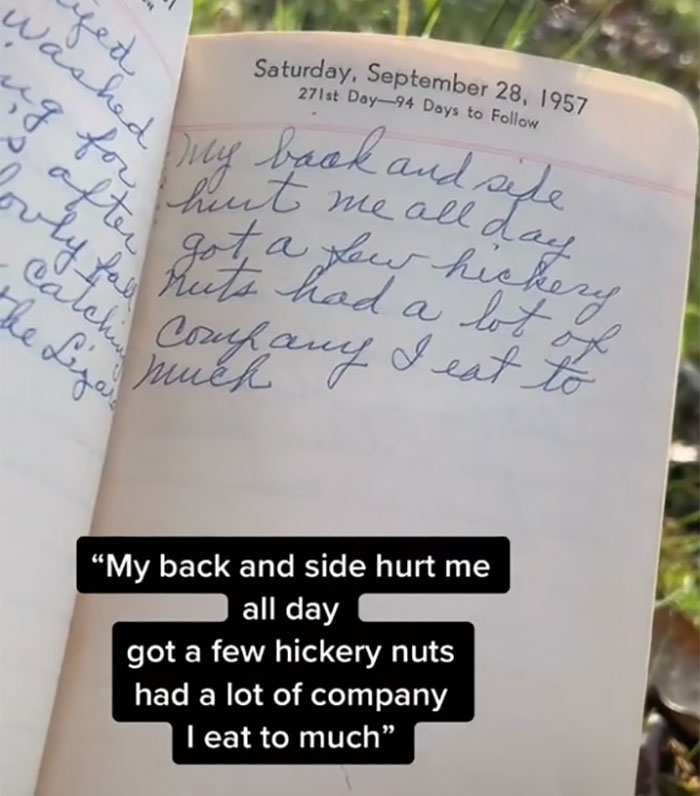 yed
washed
ng for
s after
lovly fall
catching
the
Saturday, September 28, 1957
271st Day—94 Days to Follow
My back and side
hurt me all day
got a few hickery
nuts had a lot of
Company I eat to
much
“My back and side hurt me
all day
got a few hickery nuts
had a lot of company
I eat to much”